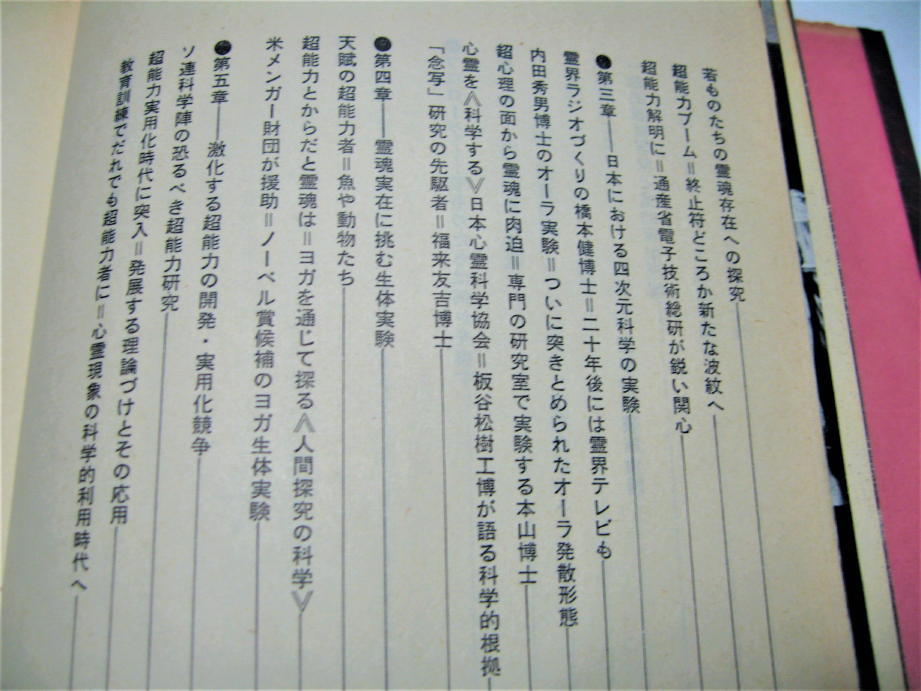 若ものたちの霊魂存在への探究
超能力ブーム=終止符どころか新たな波紋へ
超能力解明に=通産省電子技術総研が鋭い関心
●第三章――日本における四次元科学の実験
霊界ラジオづくりの橋本健博士=二十年後には霊界テレビも
内田秀男博士のオーラ実験=ついに突きとめられたオーラ発散形態
超心理の面から霊魂に肉迫=専門の研究室で実験する本山博士
心霊を《科学する》日本心霊科学協会=板谷松樹工博が語る科学的根拠
「念写」研究の先駆者=福来友吉博士
●第四章――霊魂実在に挑む生体実験
天賦の超能力者=魚や動物たち
超能力とからだと霊魂は=ヨガを通じて探る《人間探究の科学》
米メンガー財団が援助=ノーベル賞候補のヨガ生体実験
●第五章――激化する超能力の開発・実用化競争
ソ連科学陣の恐るべき超能力研究
超能力実用化時代に突入=発展する理論づけとその応用
教育訓練でだれでも超能力者に=心霊現象の科学的利用時代へ